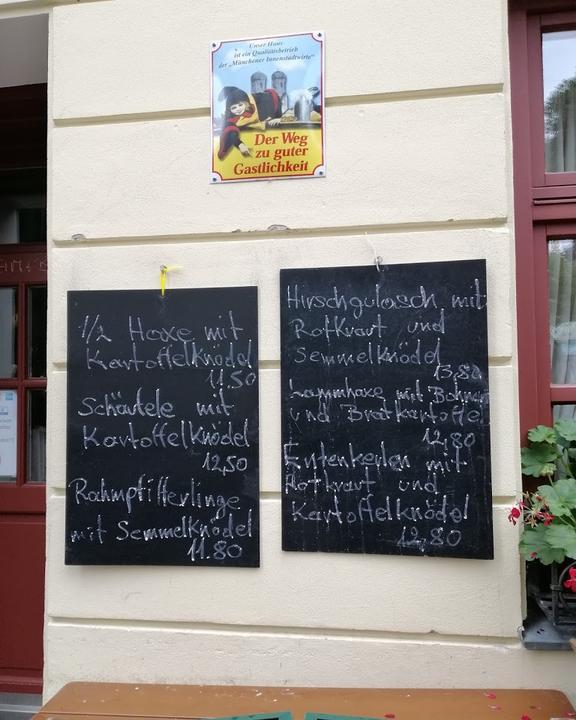 Unser Haus
ist ein Qualitätsbetrieb
der „Münchener Innenstadtwirte“
Der Weg
zu guter
Gastlichkeit
1/2 Haxe mit
Kartoffelknödel
11,50
Schäufele mit
Kartoffelknödel
12,50
Rahmpfifferlinge
mit Semmelknödel
11.80
Hirschgulasch mit
Rotkraut und
Semmelknödel
13,80
Lammhaxe mit Bohnen
und Bratkartoffel
12,80
Entenkeulen mit
Rotkraut und
Kartoffelknödel
12,80